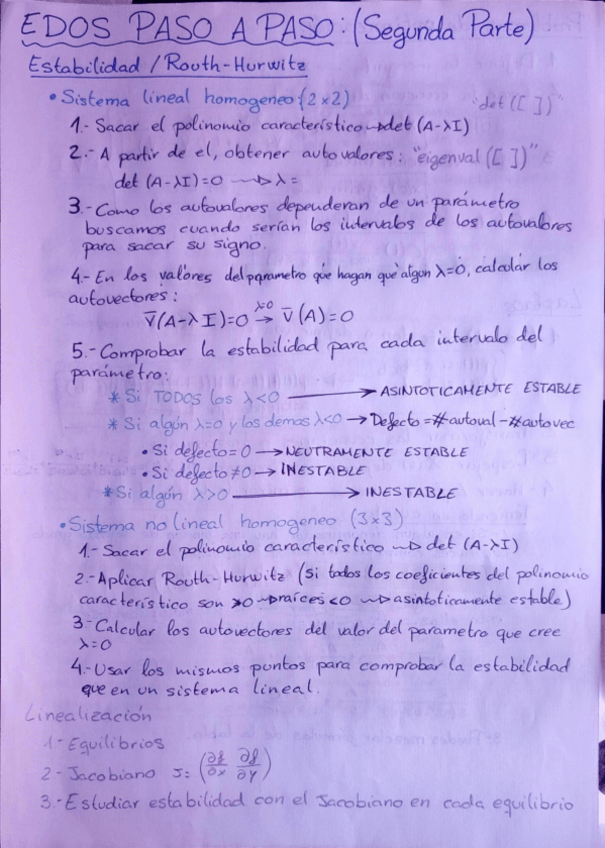 EDOS PASO A PASO: (Segunda Parte)
Estabilidad / Routh-Hurwitz
• Sistema lineal homogeneo (2×2) "det([ ])"
1.- Sacar el polinomio característico → det (A-λI)
2.- A partir de el, obtener autovalores: "eigenval([ ])"
det (A-λI)=0 → λ=
3.- Como los autovalores dependeran de un parámetro
buscamos cuando serían los intervalos de los autovalores
para sacar su signo.
4.- En los valores del parametro que hagan que algun λ=0, calcular los
autovectores:
V̄(A-λI)=0 λ=0→ V̄(A)=0
5.- Comprobar la estabilidad para cada intervalo del
parámetro:
* Si TODOS los λ<0 → ASINTOTICAMENTE ESTABLE
* Si algún λ=0 y los demas λ<0 → Defecto = #autoval - #autovec
• Si defecto=0 → NEUTRAMENTE ESTABLE
• Si defecto≠0 → INESTABLE
* Si algún λ>0 → INESTABLE
• Sistema no lineal homogeneo (3×3)
1.- Sacar el polinomio característico → det (A-λI)
2.- Aplicar Routh-Hurwitz (si todos los coeficientes del polinomio
característico son >0 → raíces <0 → asintoticamente estable)
3.- Calcular los autovectores del valor del parametro que cree
λ=0
4.- Usar los mismos puntos para comprobar la estabilidad
que en un sistema lineal.
Linealización
1- Equilibrios
2- Jacobiano J= (∂f/∂x ∂f/∂y)
3.- Estudiar estabilidad con el Jacobiano en cada equilibrio